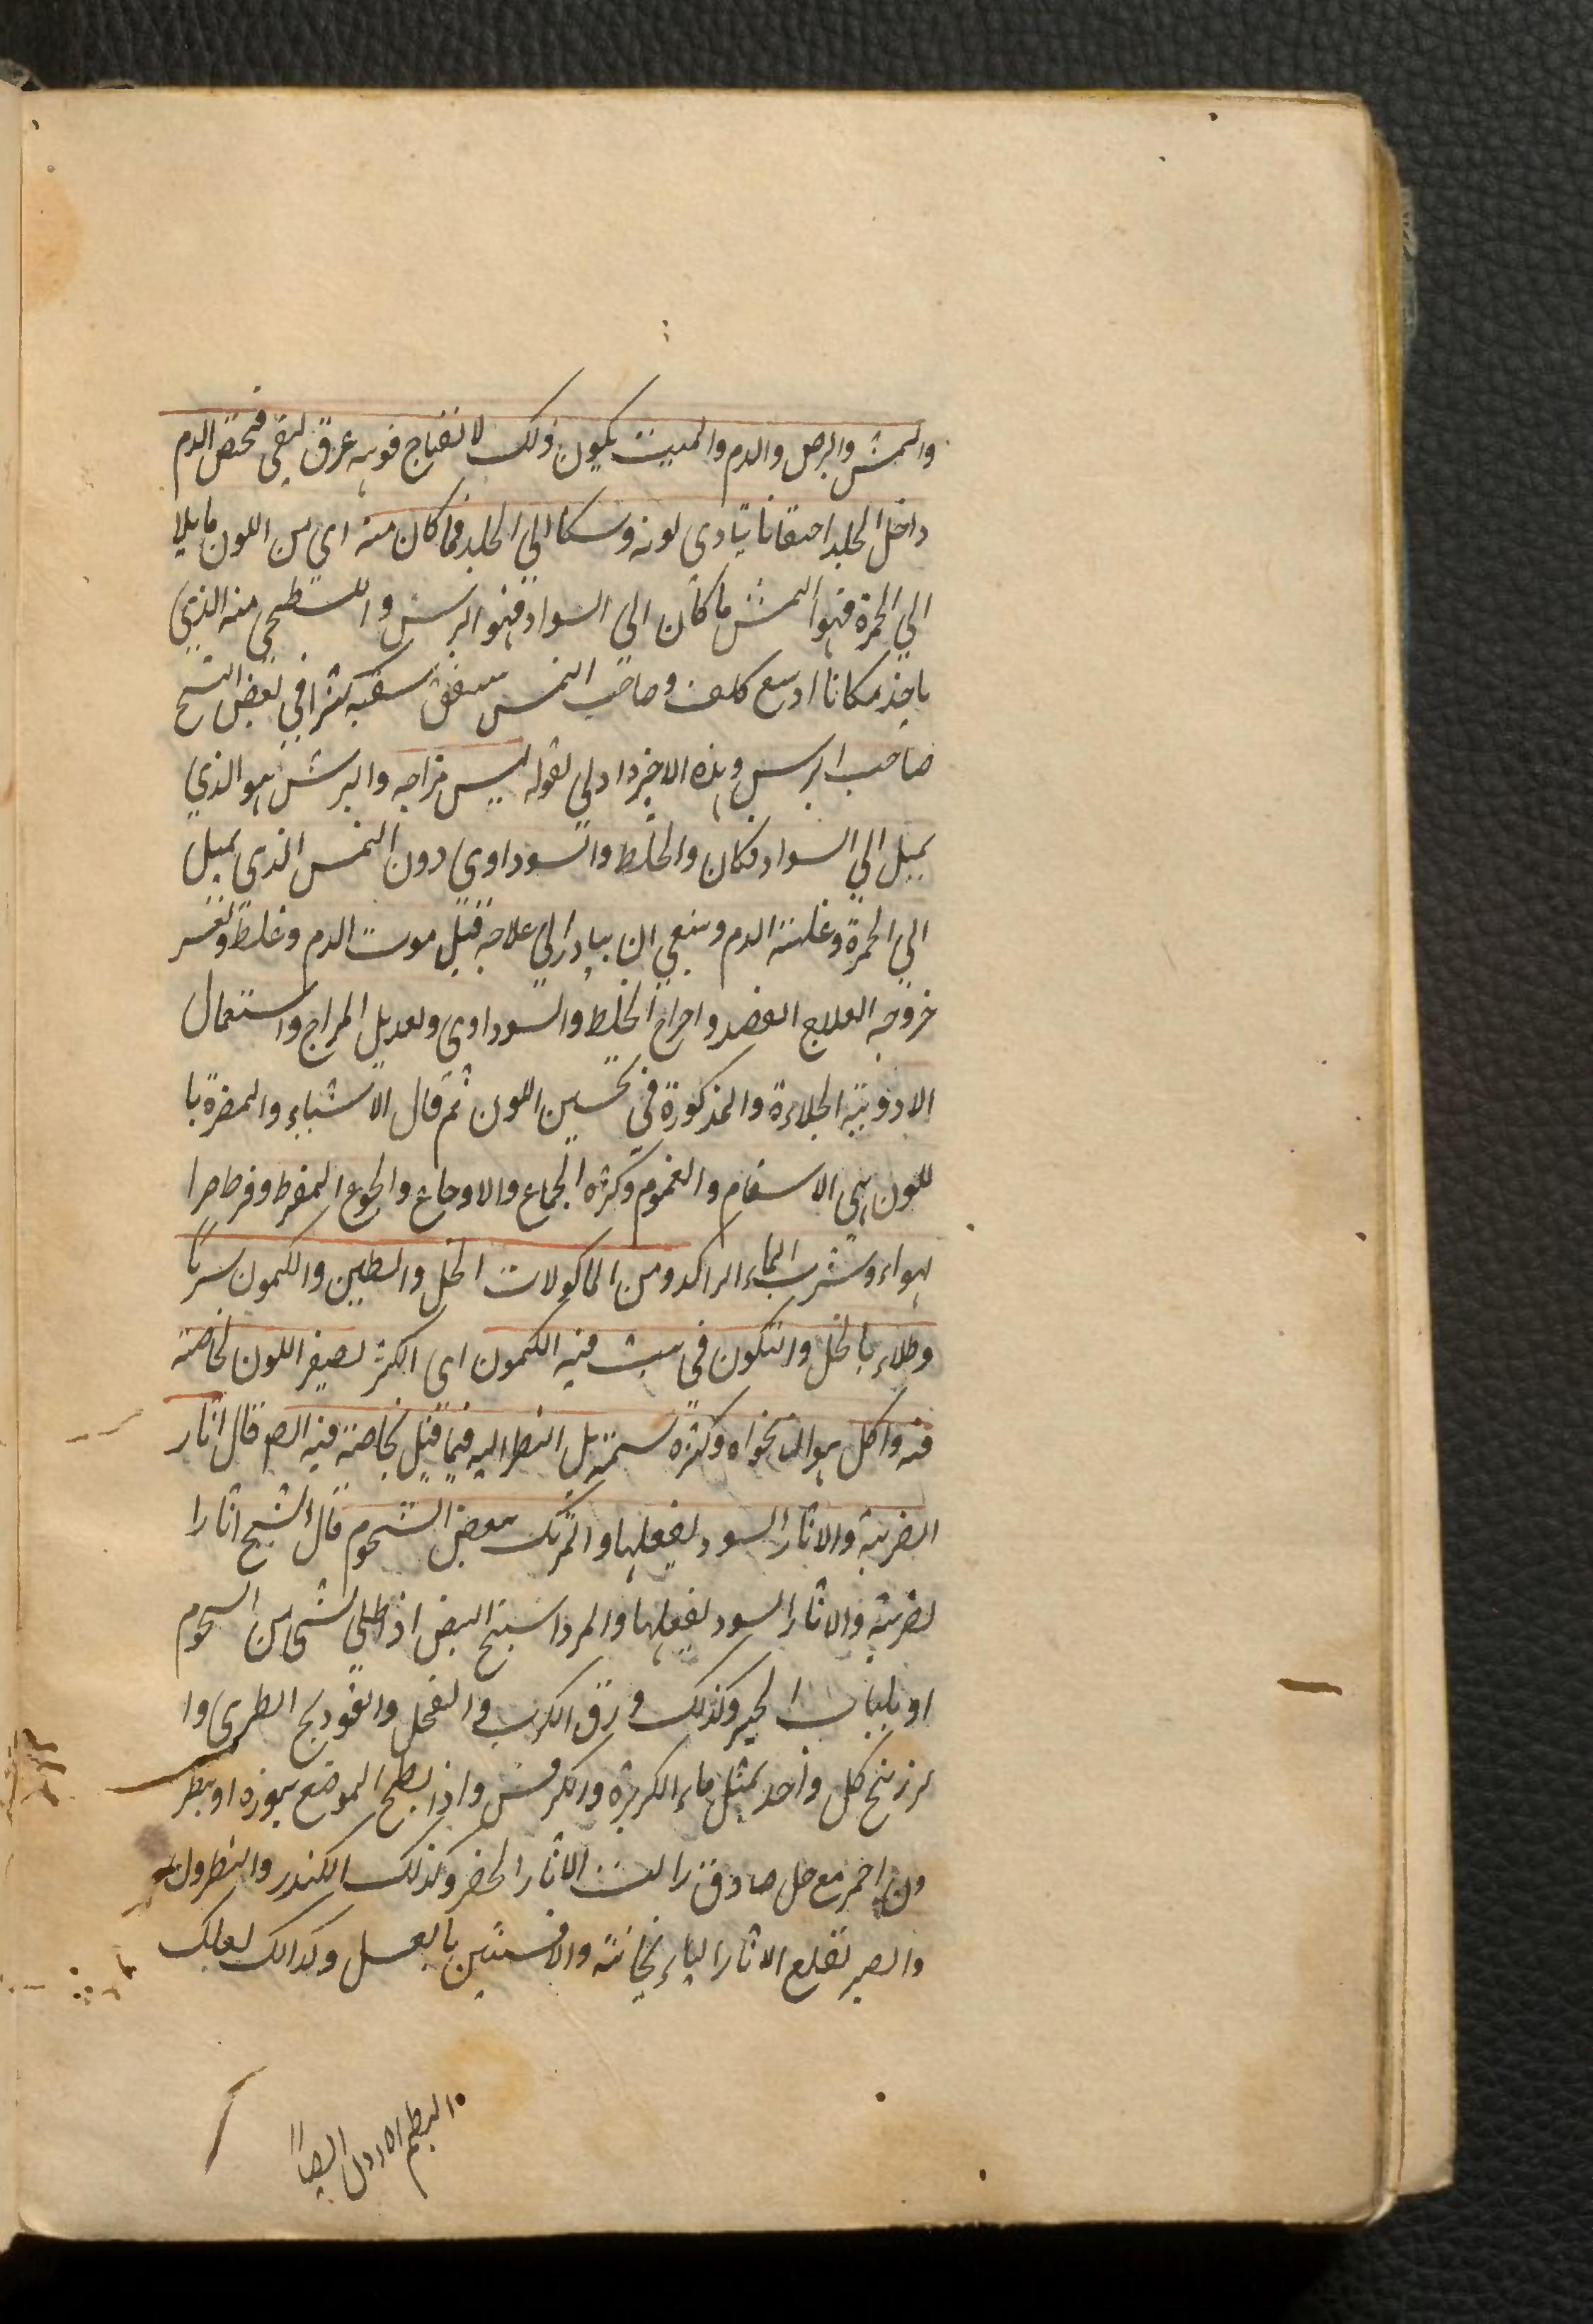 والنمش والبرص والدم والميت يكون ذلك لانفتاح فوهه عرق ليقى فتحتقن الدم
داخل الجلد احتقانا يتادى لونه وسكا الى الجلد فما كان منه اى من اللون مايلا
الى الحمرة فهو النمش ما كان الى السواد فهو البرش والسطحى منه الذي
ياخذ مكانا اوسع كلف وصاحب النمس كثيرا فى بعض النسخ
صاحب البرس وهذه الاخير اولى لقوله يبس مزاجه والبرش هو الذي
يميل الى السواد فكان والخلط والسوداوى دون النمس الذى يميل
الى الحمرة وغلبة الدم وينبغى ان يبادر الى علاجه قبل موت الدم وغلط وتعسر
خروجه العلاج الفصد واخراج الخلط والسوداوى وتعديل المزاج واستعمال
الادوية الجلاءة والمذكورة فى تحسين اللون ثم قال الاشياء والمضرة با
للون هى الاسقام والغموم وكثره الجماع والاوجاع والجوع المفرط وفرط حرا
لهواء وشرب الماء الراكد ومن الماكولات الخل والطين والكمون سربا
وطلاء بالخل والتكون فى بيت فيه الكمون اى اكثر لصيفر اللون لخاصة
فيه واكل هوالنانخواه وكثره شمه بل النظر اليه فيما قيل بخاصة فيه الص قال اثار
الضربة والاثار السود لفعلها والمرتك ببعض الشحوم قال الشيخ اثارا
لضربة والاثار السود لفعلها والمرداسنج البيض اذ اطلى لشى من السحوم
او بلباب الخبز وكذلك ورق الكرنب و الفجل والفودنج الطرى وا
لزرنيخ كل واحد بمثل ماء الكزبرة والكرفس واذا بطح الموضع بنوره او بنطر
ون احمر مع خل صادق زالت الاثار الخضر وكذلك الكندر والنطرون
والصبر تقلع الاثار الباذنجانية والافسنتين بالعسل وكذالك لعلك
البطم